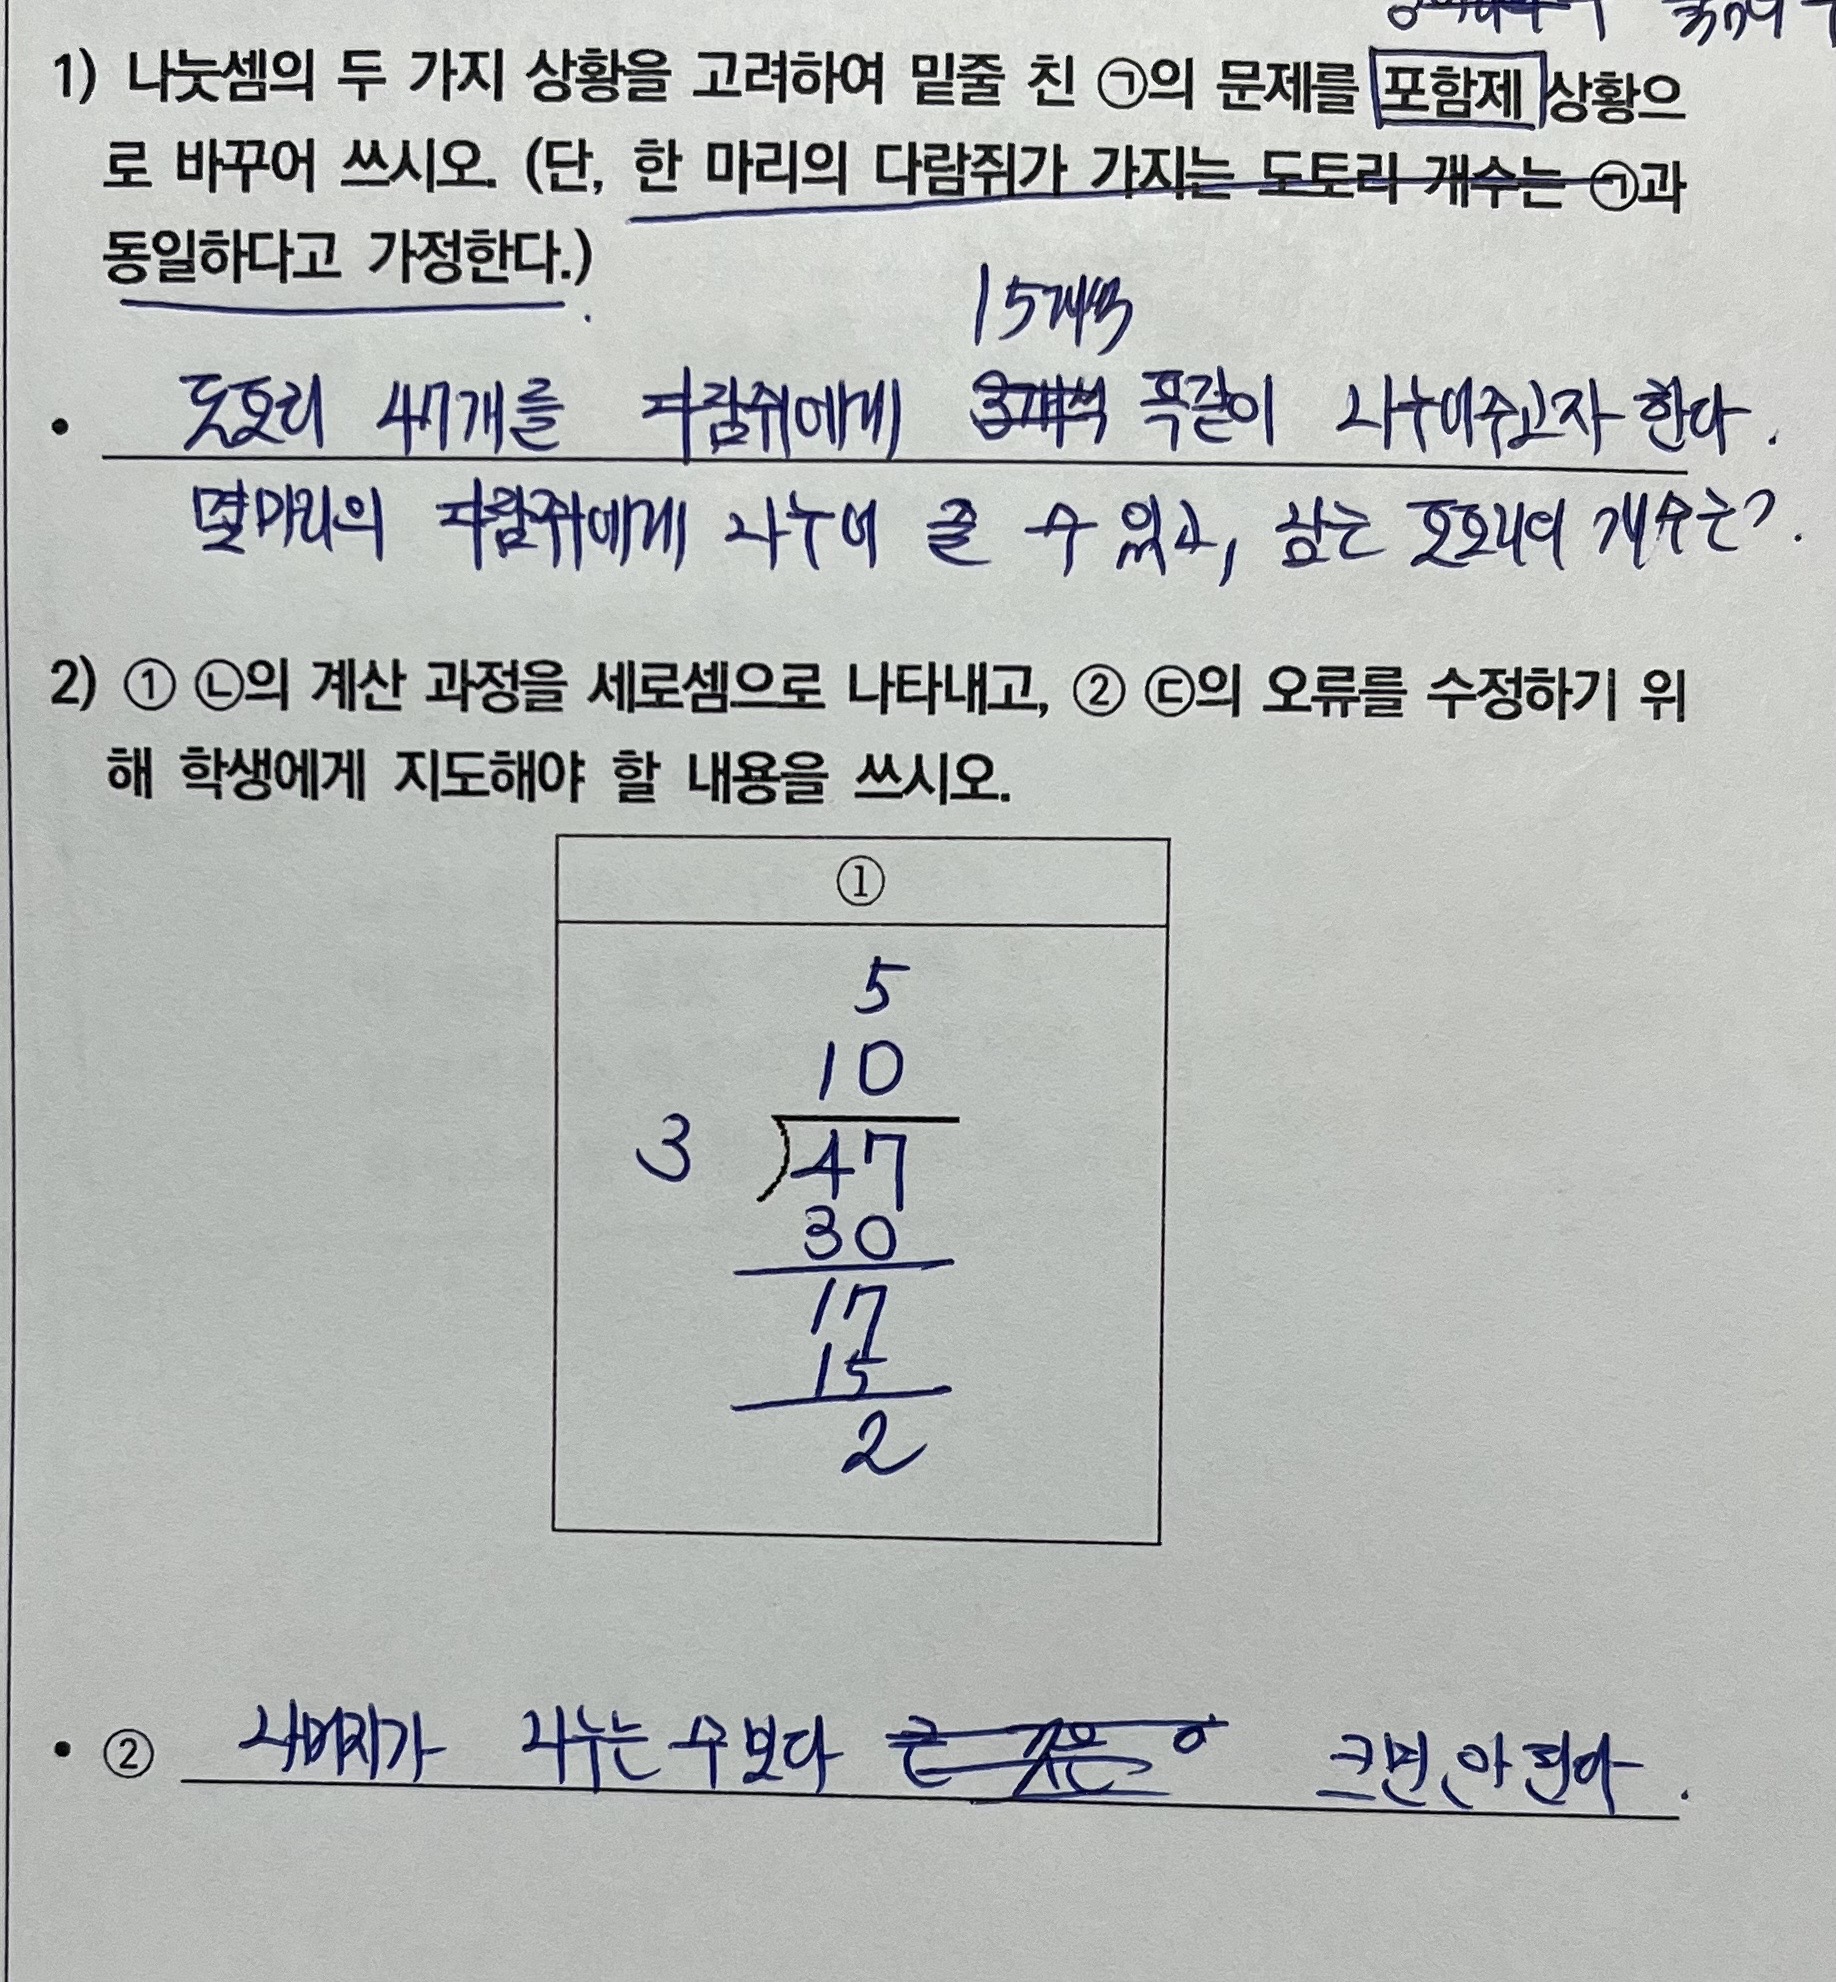 1) 나눗셈의 두 가지 상황을 고려하여 밑줄 친 ㉠의 문제를 포함제 상황으
로 바꾸어 쓰시오. (단, 한 마리의 다람쥐가 가지는 도토리 개수는 ㉠과
동일하다고 가정한다.)
15개씩
• 도토리 47개를 다람쥐에게 3개씩 똑같이 나누어주고자 한다.
몇마리의 다람쥐에게 나누어 줄 수 있고, 남는 도토리의 개수는?.
2) ① ㉡의 계산 과정을 세로셈으로 나타내고, ② ㉢의 오류를 수정하기 위
해 학생에게 지도해야 할 내용을 쓰시오.
①
5
10
3 )47
30
17
15
2
• ② 나머지가 나누는 수보다 크면 안 된다.